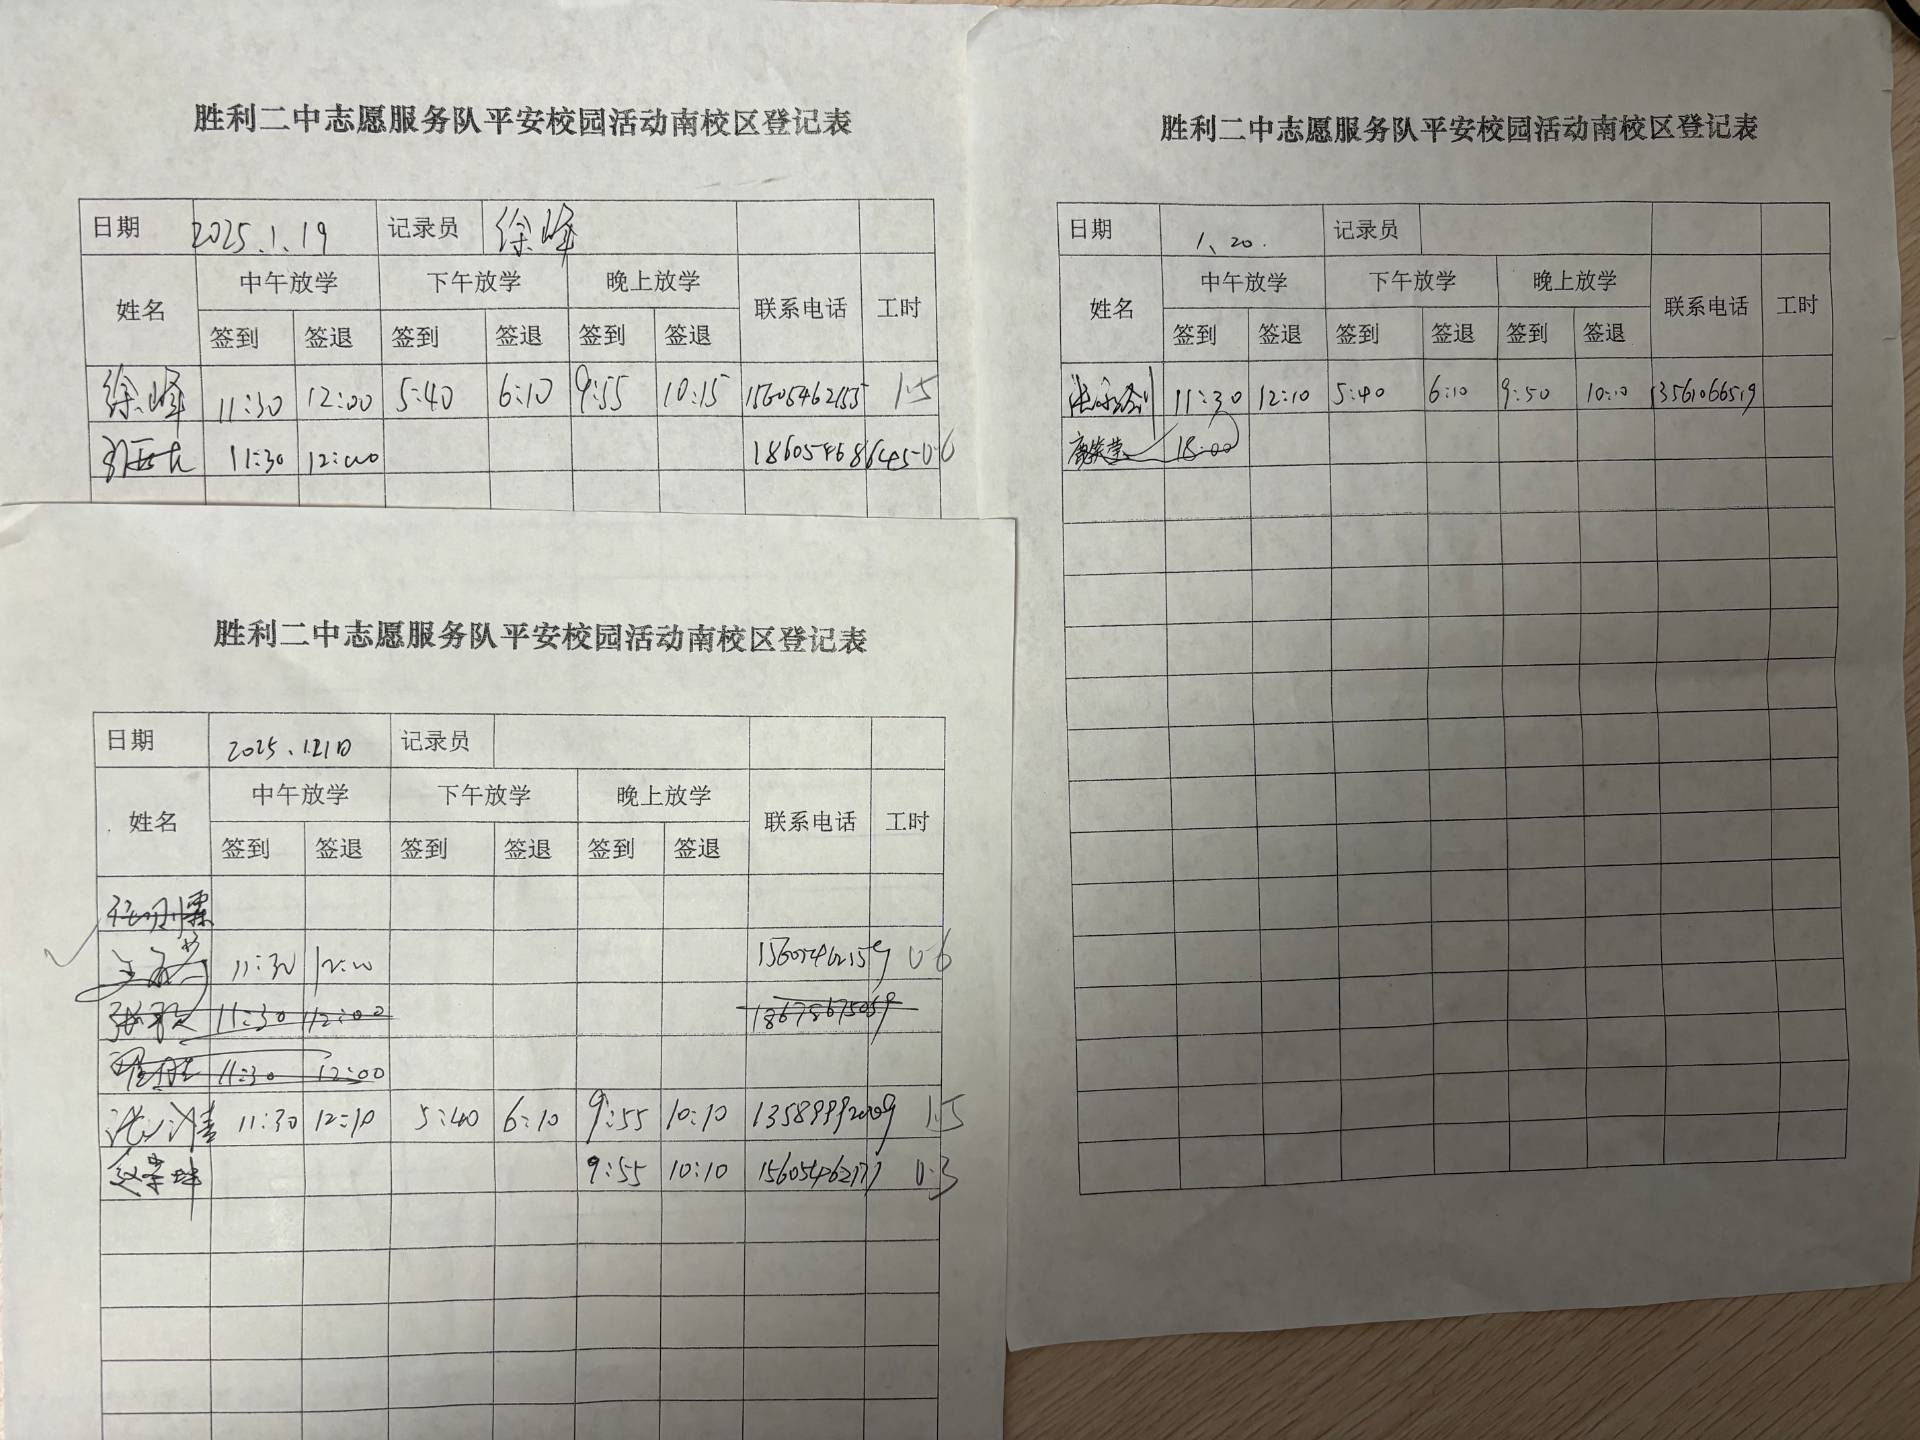 胜利二中志愿服务队平安校园活动南校区登记表
日期 2025.1.19 记录员 徐峰
姓名 中午放学 下午放学 晚上放学 联系电话 工时
签到 签退 签到 签退 签到 签退
徐峰 11:30 12:00 5:40 6:10 9:55 10:15 15605462155 1.5
11:30 12:00 18605468645 0.6
胜利二中志愿服务队平安校园活动南校区登记表
日期 1、20. 记录员
姓名 中午放学 下午放学 晚上放学 联系电话 工时
签到 签退 签到 签退 签到 签退
11:30 12:10 5:40 6:10 9:50 10:10 13561066519
18:00
胜利二中志愿服务队平安校园活动南校区登记表
日期 2025.1.21日 记录员
姓名 中午放学 下午放学 晚上放学 联系电话 工时
签到 签退 签到 签退 签到 签退
11:30 12:00 15605462159 0.6
11:30 12:00 18678675059
11:30 12:00
11:30 12:10 5:40 6:10 9:55 10:10 13589992009 1.5
赵荣坤 9:55 10:10 15605462177 0.3